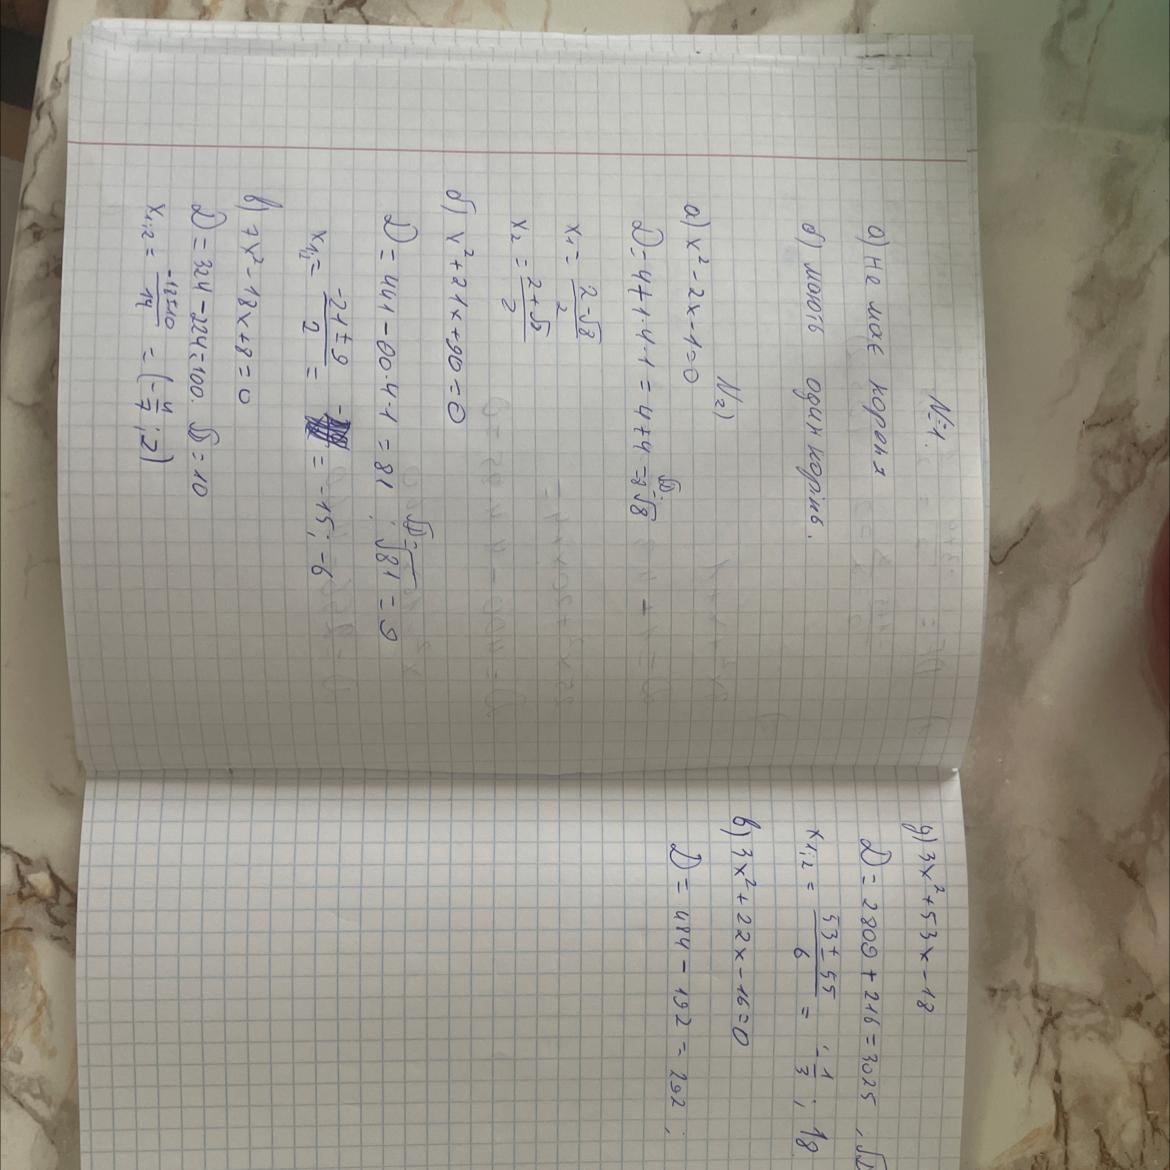 №1.
а) Не має кореня
б) мають один корінь.
№2)
а) x² - 2x - 1 = 0
D = 4 + 1·4·1 = 4 + 4 = 8 √D = √8
x₁ = (2 - √8)/2
x₂ = (2 + √8)/2
б) x² + 21x + 90 = 0
D = 441 - 90·4·1 = 81; √D = √81 = 9
x₁; = (-21 ± 9)/2 = = -15; -6
в) 7x² - 18x + 8 = 0
D = 324 - 224 = 100. √D = 10
x₁;₂ = (-18 ± 10)/14 = (-4/7; 2)
3x² + 53x - 18
D = 2809 + 216 = 3025
x₁;₂ = (53 ± 55)/6 = -1/3; 18
в) 3x² + 22x - 16 = 0
D = 484 - 192 = 292;